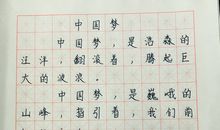 中国梦
中国梦，是浩淼的
汪洋，翻滚着，腾起巨
大的波浪。
中国梦，是巍峨的
山峰，指引着，我们前